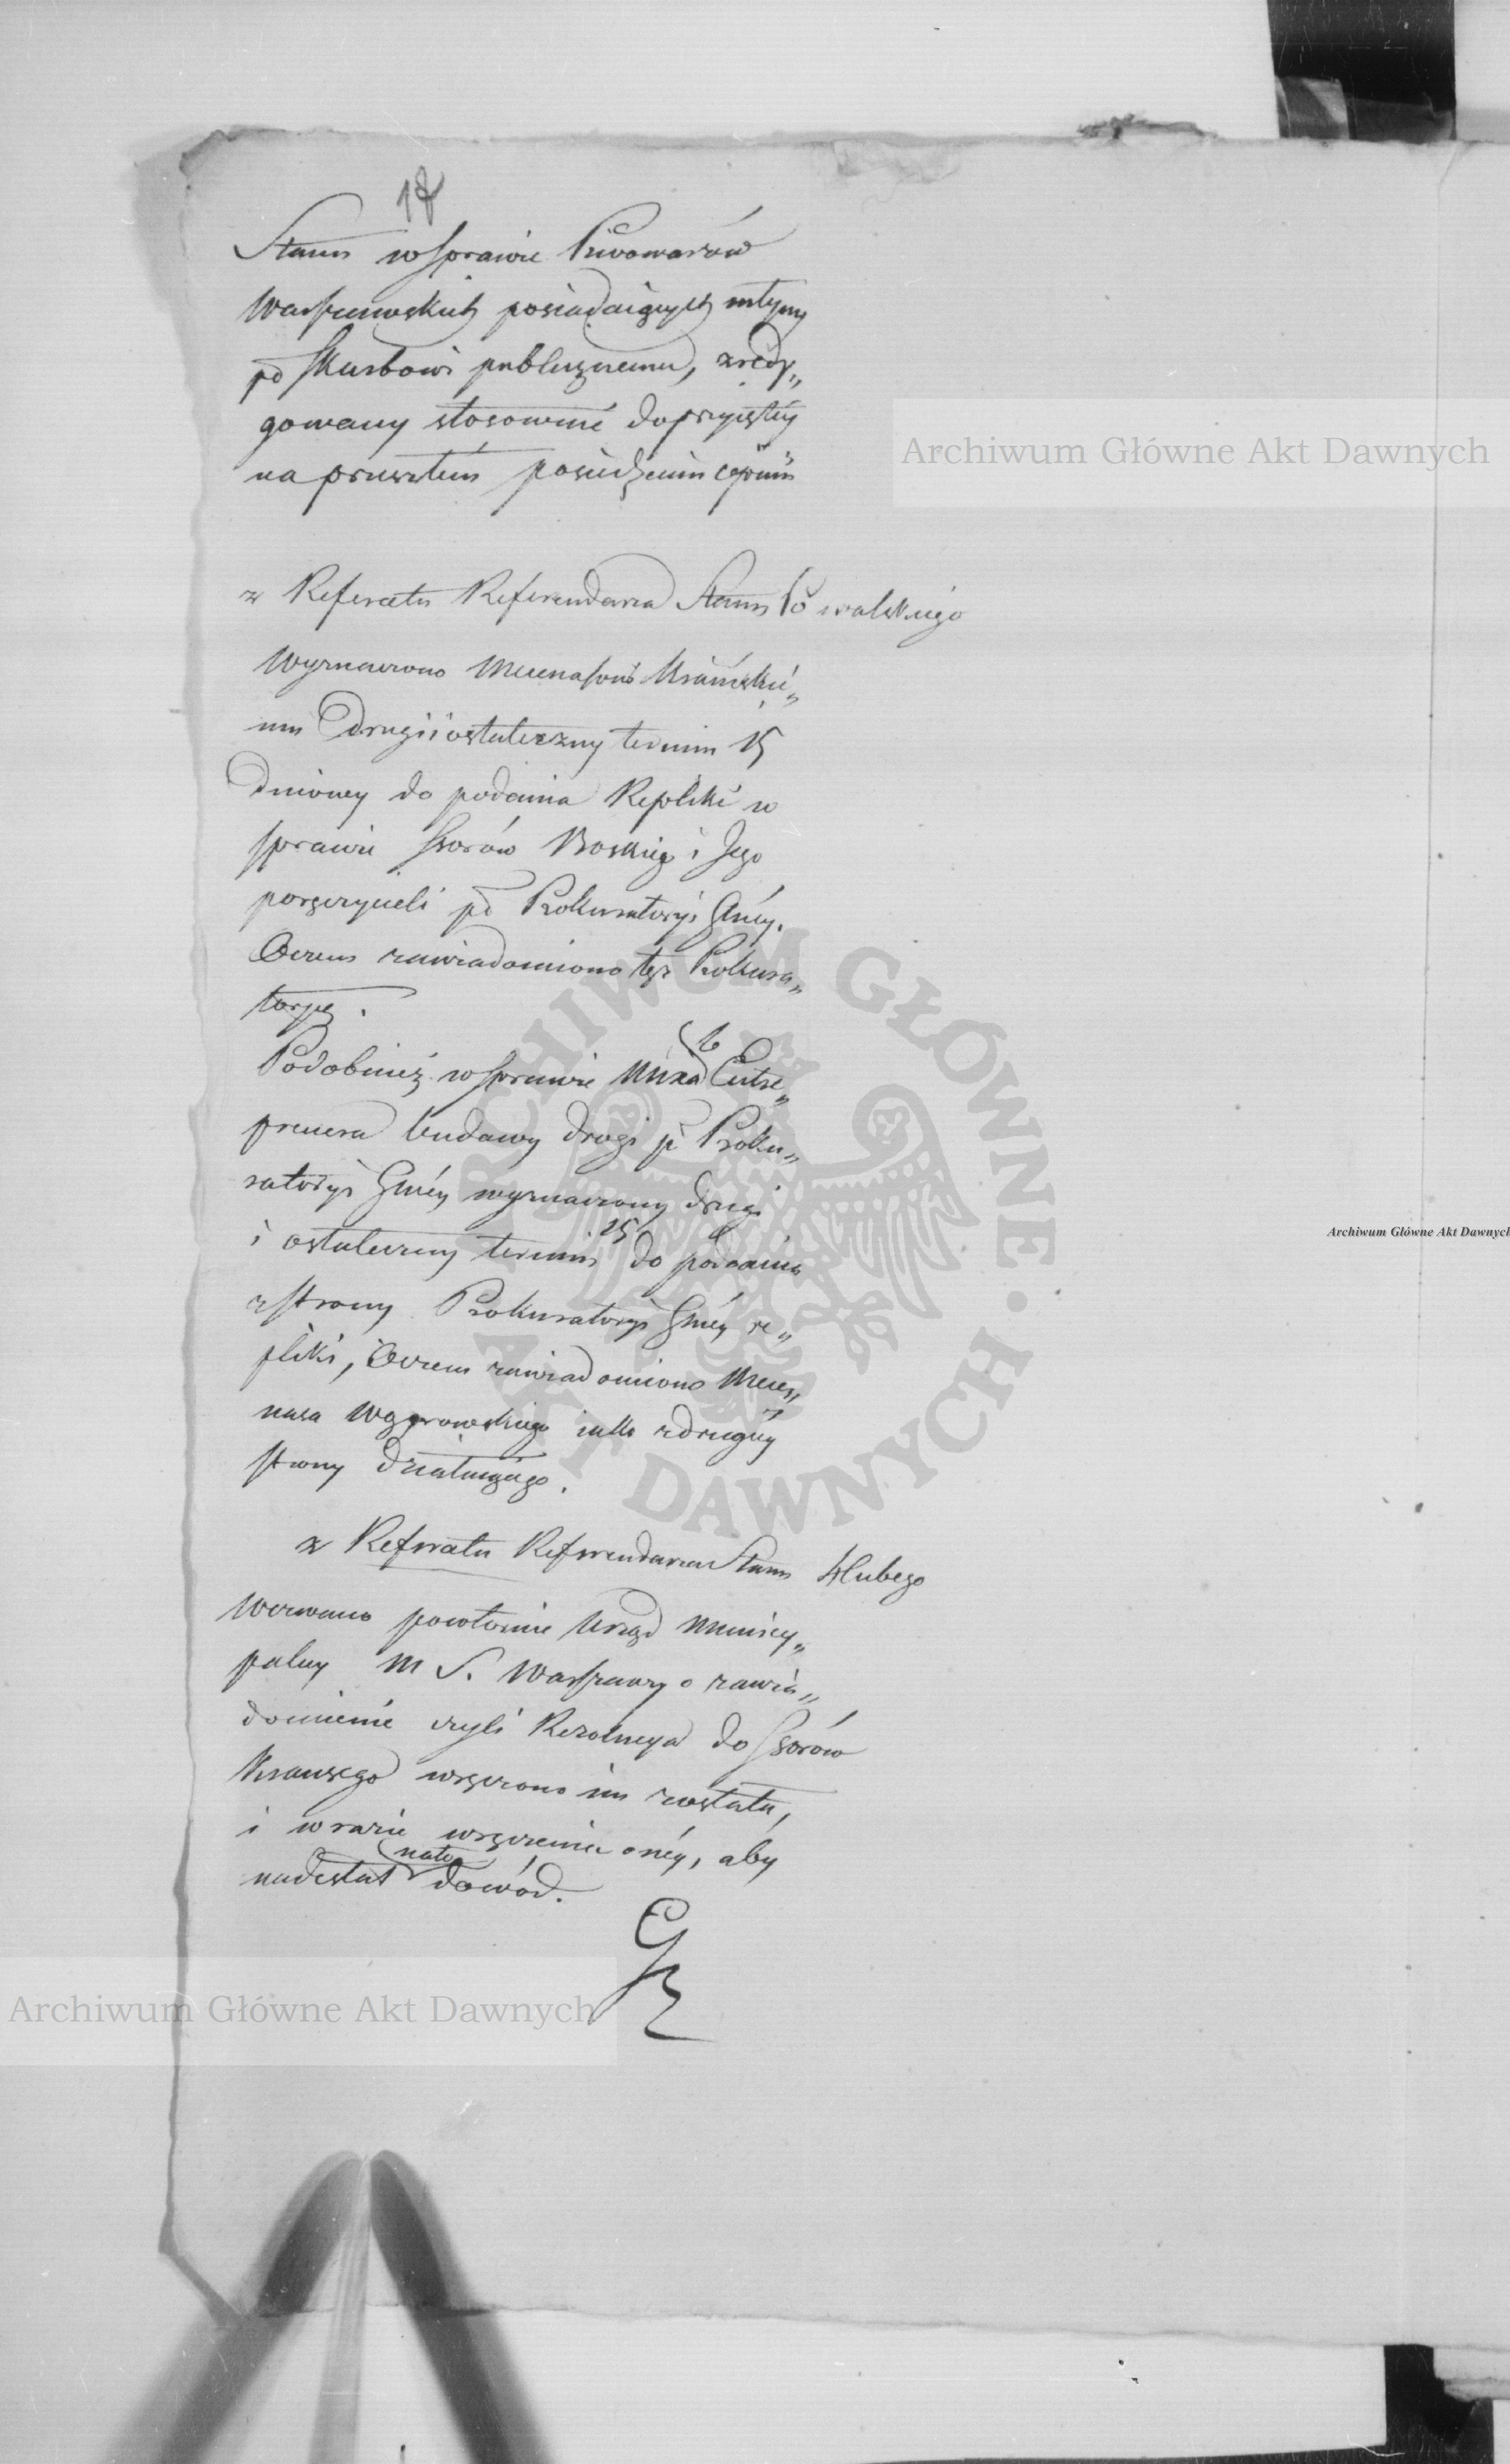 18
Stanu w sprawie Piwowarów
Warszawskich posiadaiących młyny
pd Skarbowi publicznemu, zredy„
gowany stosownie do przyiętéy
na przeszłém posiedzeniu opinii
z Referatu Referendarza Stanu
Wyznaczono Mecenasowi
mu drugi i ostateczny termin 15
dniowy do podania Repliki w
sprawie Ssorów i Jego
poręczycieli pd Prokuratoryi Gnéy.
Oczem zawiadomiono tęż Prokura„
toryę.
Podobnież w sprawie Entre„
prenera budowy drogi p Proku„
ratoryi Gnéy wyznaczony drugi
i ostateczny termin 15 do podania
z strony Prokuratoryi Gnéy re„
pliki, Oczem zawiadomiono Mece„
nasa Wągrowskiego iako z drugiéy
strony działaiącego.
z Referatu Referendarza Stanu Hlubego
Wezwano powtórnie Urząd Municy„
palny M S. Warszawy o zawia„
domienie czyli Rezolucya do Ssorów
Krauzego wręczono im została,
i w razie wręczenia onéy, aby
nadesłał na to dowód.
Archiwum Główne Akt Dawnych
Archiwum Główne Akt Dawnych
Archiwum Główne Akt Dawnych
ARCHIWUM GŁÓWNE · AKT DAWNYCH ·